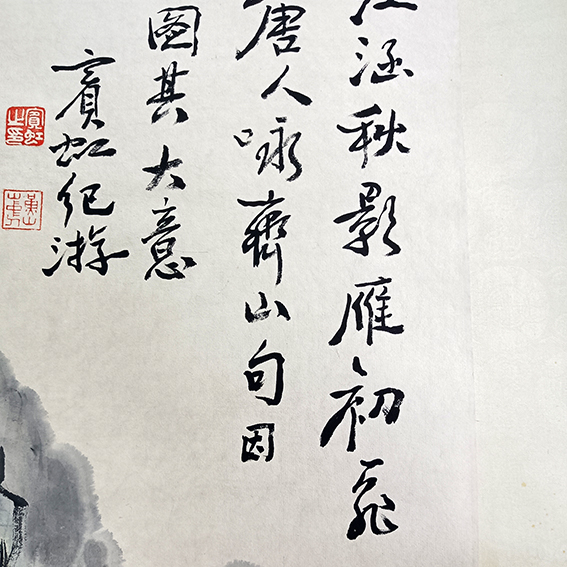 江涵秋影雁初飛
唐人咏齊山句因
圖其大意
賓虹紀游
賓虹之印
黃山山中人